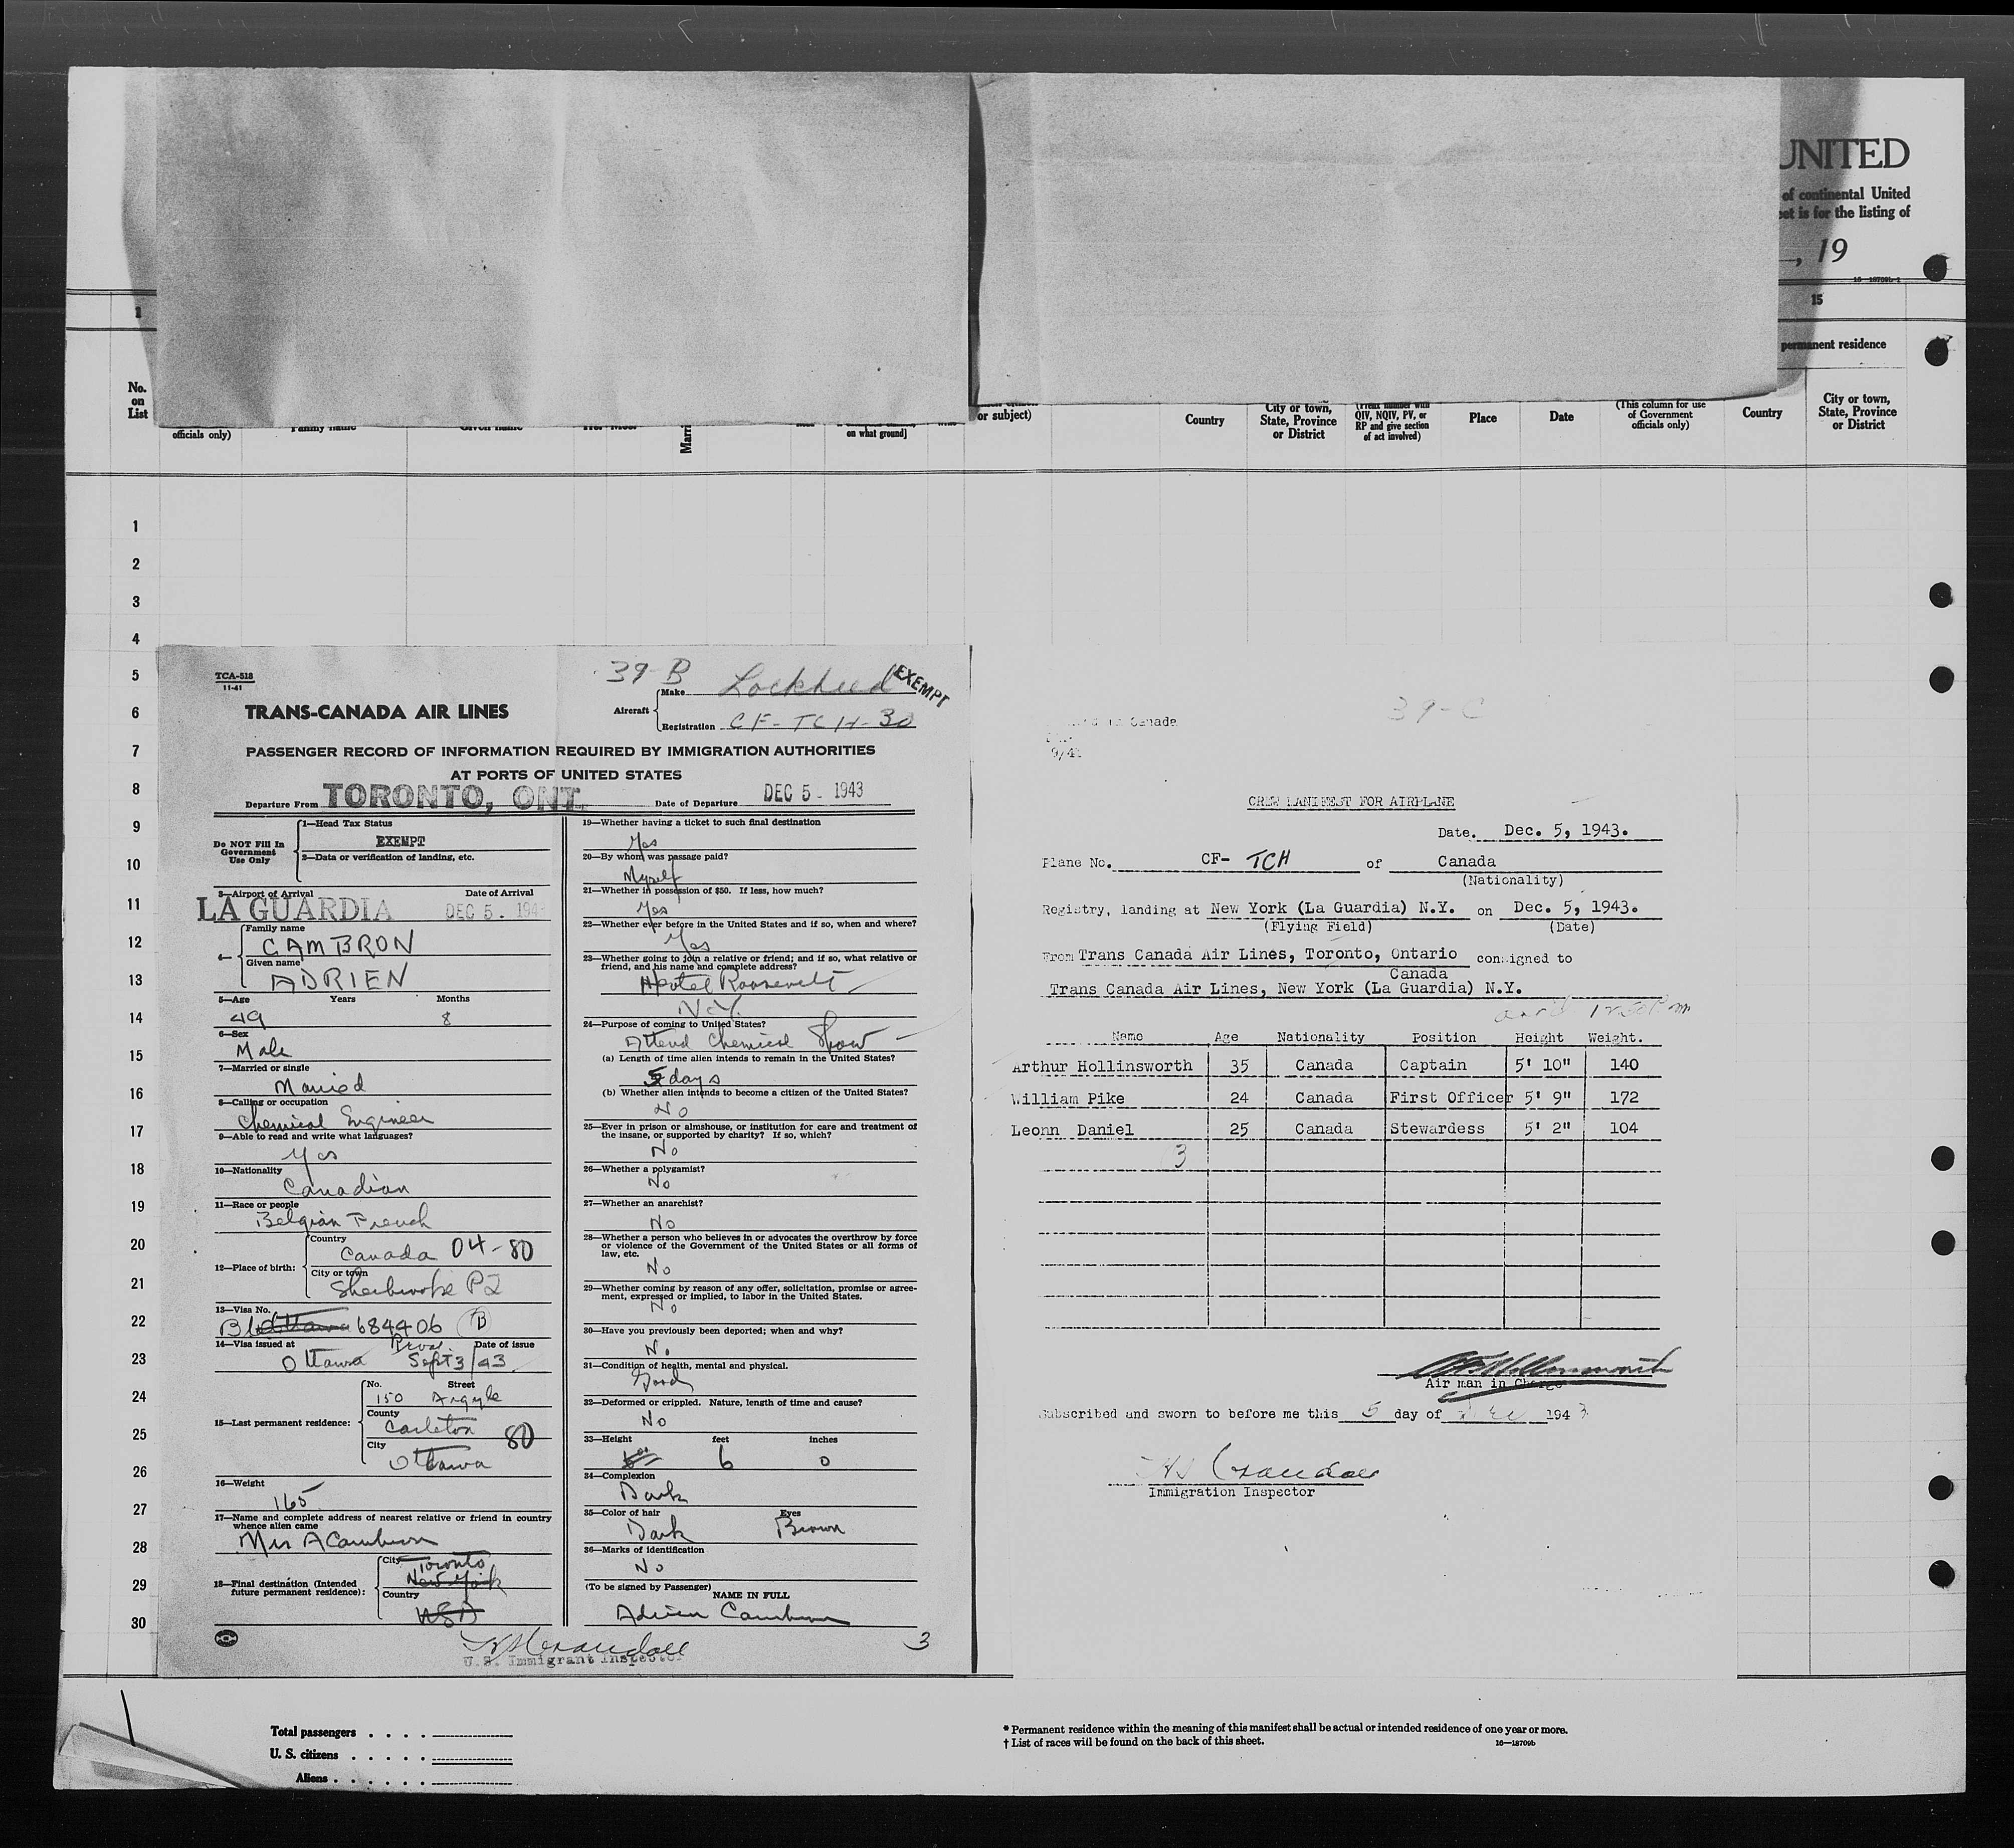 UNITED
of continental United
is for the listing of
, 19
1
15
permanent residence
No.
on
List
officials only)
on what ground]
or subject)
Country
City or town,
State, Province
or District
QIV, NQIV, PV, or
RP and give section
of act involved)
Place
Date
(This column for use
of Government
officials only)
Country
City or town,
State, Province
or District
1
2
3
4
5
6
7
8
9
10
11
12
13
14
15
16
17
18
19
20
21
22
23
24
25
26
27
28
29
30
TCA-518
11-41
39-B
EXEMPT
TRANS-CANADA AIR LINES
Aircraft
Make Lockheed
Registration CF-TCH-30
PASSENGER RECORD OF INFORMATION REQUIRED BY IMMIGRATION AUTHORITIES
AT PORTS OF UNITED STATES
Departure From TORONTO, ONT. Date of Departure DEC 5 - 1943
Do NOT Fill In
Government
Use Only
1—Head Tax Status
EXEMPT
2—Data or verification of landing, etc.
3—Airport of Arrival Date of Arrival
LA GUARDIA DEC 5 - 194
Family name
CAMBRON
Given name
ADRIEN
5—Age Years Months
49 8
6—Sex
Male
7—Married or single
Married
8—Calling or occupation
Chemical Engineer
9—Able to read and write what languages?
Yes
10—Nationality
Canadian
11—Race or people
Belgian French
12—Place of birth:
Country
Canada 04-80
City or town
Sherbrooke PQ
13—Visa No.
684406 B
14—Visa issued at Date of issue
Ottawa Sept 3/43
15—Last permanent residence:
No. Street
150 Argyle
County
Carleton 80
City
Ottawa
16—Weight
165
17—Name and complete address of nearest relative or friend in country
whence alien came
Mrs A Cambron
18—Final destination (Intended
future permanent residence):
City Toronto
New York
Country
USA
19—Whether having a ticket to such final destination
Yes
20—By whom was passage paid?
Myself
21—Whether in possession of $50. If less, how much?
Yes
22—Whether ever before in the United States and if so, when and where?
Yes
23—Whether going to join a relative or friend; and if so, what relative or
friend, and his name and complete address?
Hotel Roosevelt
N.Y.
24—Purpose of coming to United States?
Attend Chemical Show
(a) Length of time alien intends to remain in the United States?
5 days
(b) Whether alien intends to become a citizen of the United States?
No
25—Ever in prison or almshouse, or institution for care and treatment of
the insane, or supported by charity? If so, which?
No
26—Whether a polygamist?
No
27—Whether an anarchist?
No
28—Whether a person who believes in or advocates the overthrow by force
or violence of the Government of the United States or all forms of
law, etc.
No
29—Whether coming by reason of any offer, solicitation, promise or agree-
ment, expressed or implied, to labor in the United States.
No
30—Have you previously been deported; when and why?
No
31—Condition of health, mental and physical.
Good
32—Deformed or crippled. Nature, length of time and cause?
No
33—Height feet inches
6 0
34—Complexion
Dark
35—Color of hair Eyes
Dark Brown
36—Marks of identification
No
(To be signed by Passenger)
NAME IN FULL
Adrien Cambron
3
U.S. Immigrant Inspector
39-C
in Canada
9/41
CREW MANIFEST FOR AIRPLANE
Date. Dec. 5, 1943.
Plane No. CF- TCH of Canada
(Nationality)
Registry, landing at New York (La Guardia) N.Y. on Dec. 5, 1943.
(Flying Field) (Date)
From Trans Canada Air Lines, Toronto, Ontario consigned to
Canada
Trans Canada Air Lines, New York (La Guardia) N.Y.
Name Age Nationality Position Height Weight.
Arthur Hollinsworth 35 Canada Captain 5' 10" 140
William Pike 24 Canada First Officer 5' 9" 172
Leonn Daniel 25 Canada Stewardess 5' 2" 104
3
Air man in Charge
Subscribed and sworn to before me this 5 day of Dec 1943
Crandall
Immigration Inspector
Total passengers . . . .
U. S. citizens . . . . .
Aliens . . . . . .
* Permanent residence within the meaning of this manifest shall be actual or intended residence of one year or more.
† List of races will be found on the back of this sheet.
16—18709b